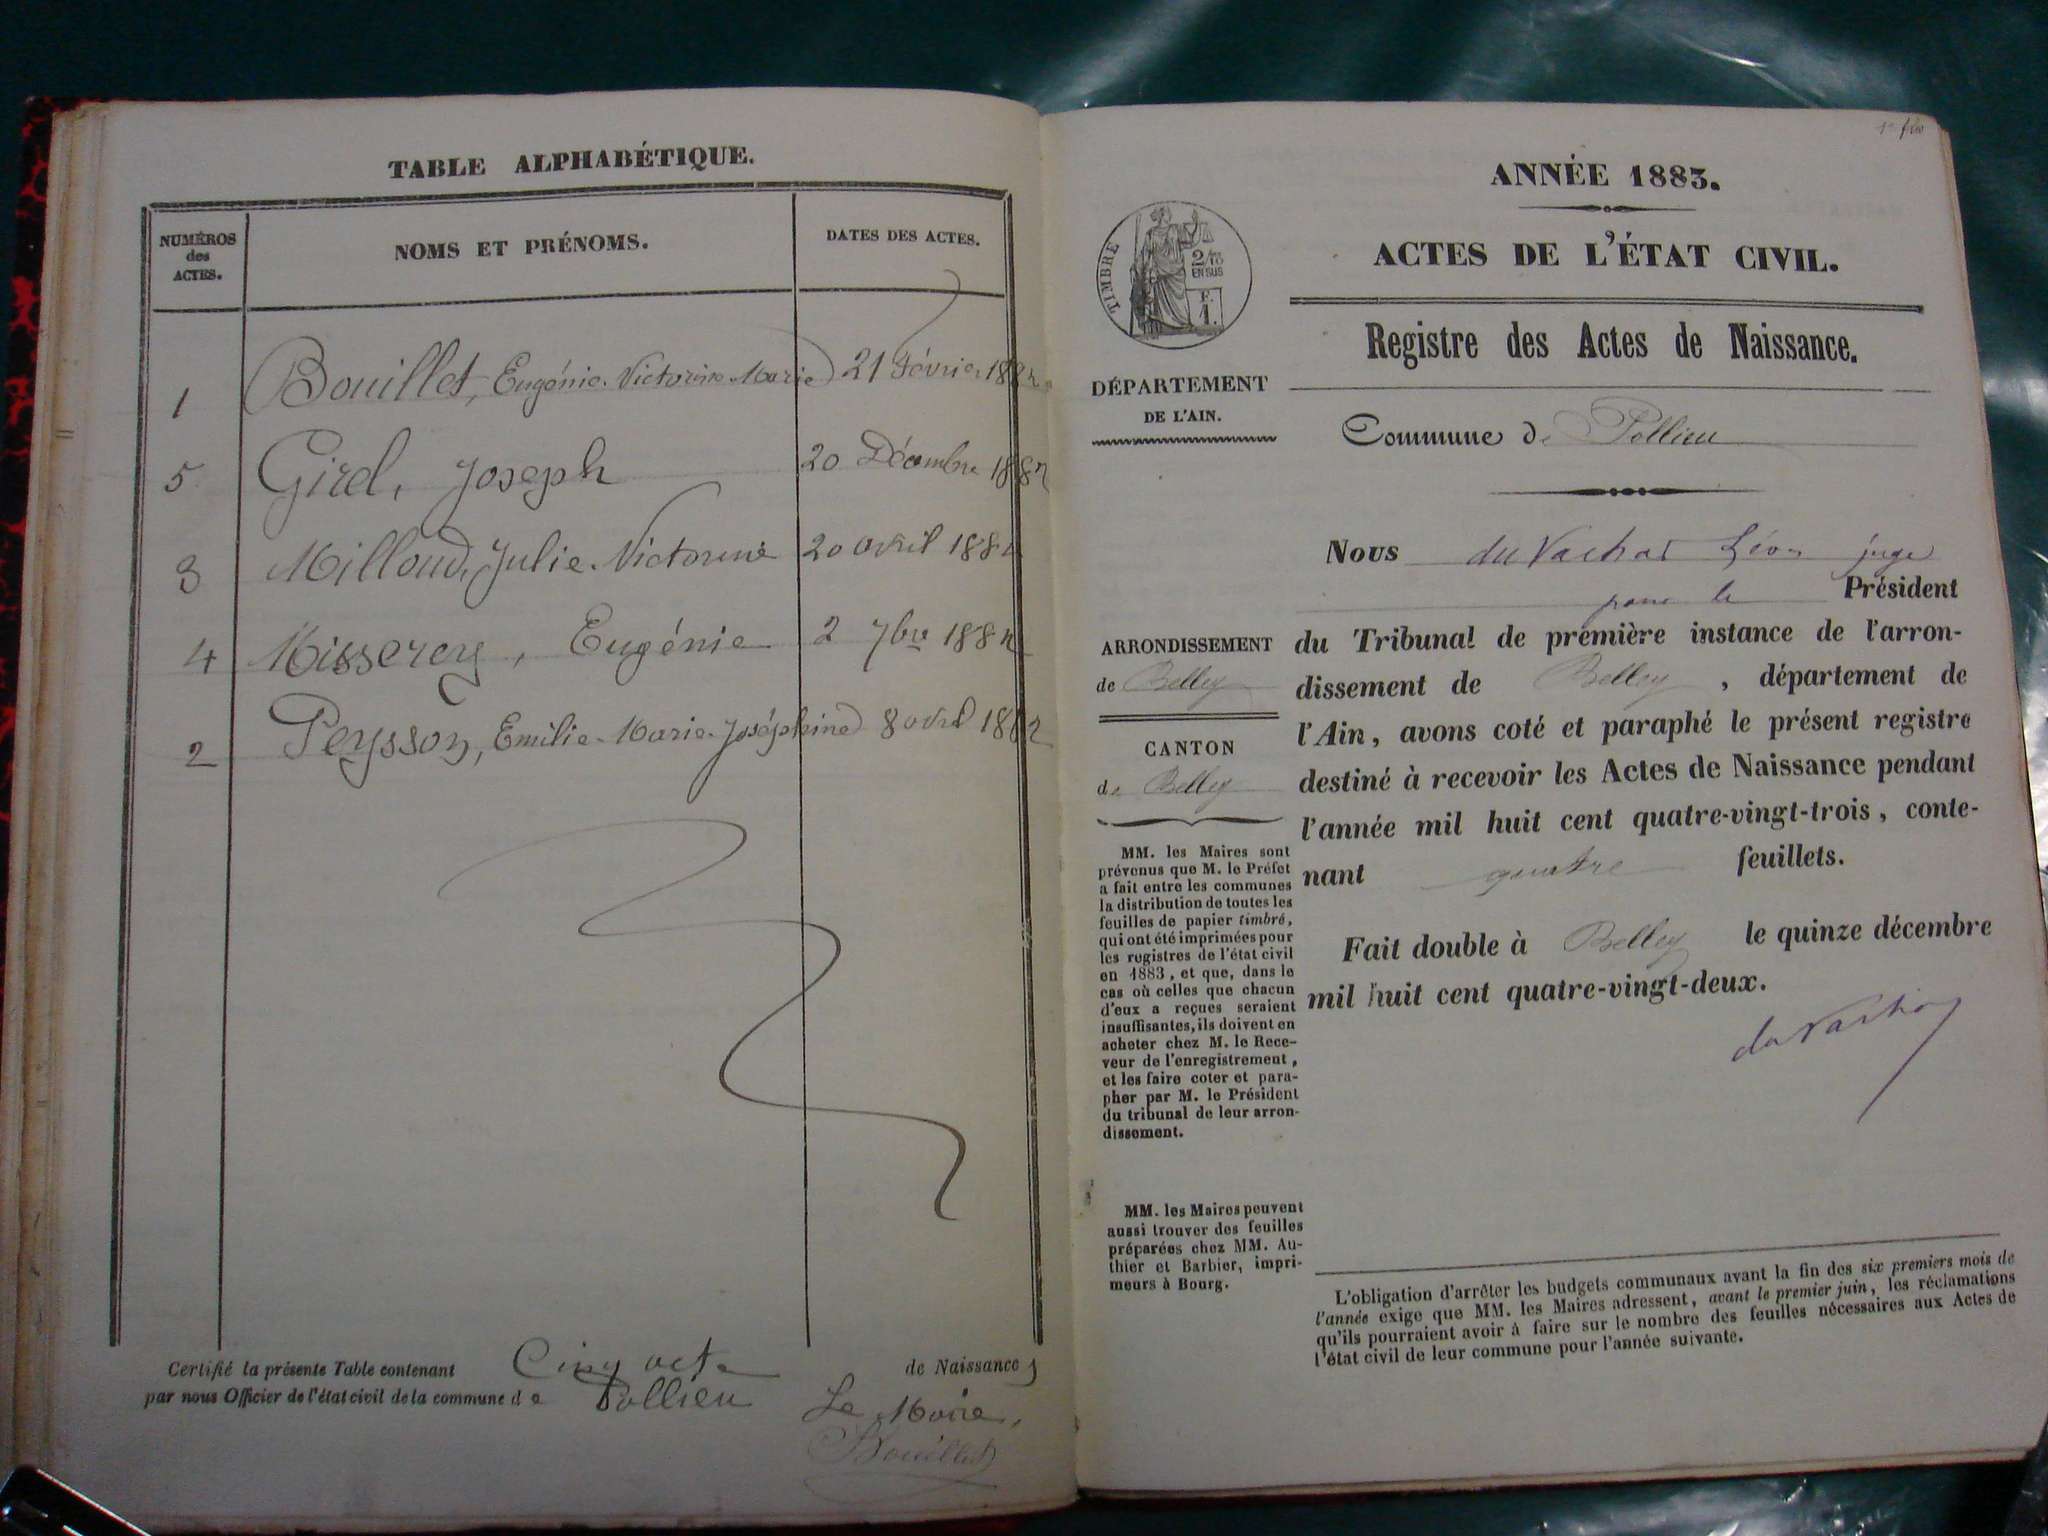 TABLE ALPHABÉTIQUE.
NUMÉROS
des
ACTES.
NOMS ET PRÉNOMS.
DATES DES ACTES.
1 Bouillet, Eugénie Victorine Marie 21 Février 1882
5 Girel, Joseph 20 Décembre 1882
3 Milloud, Julie Victorine 20 avril 1882
4 Misserey, Eugénie 2 7bre 1882
2 Peysson, Emilie Marie Joséphine 8 avril 1882
Certifié la présente Table contenant Cinq acte de Naissance
par nous Officier de l'état civil de la commune de Pollieu
Le Maire,
Bouillet
ANNÉE 1883.
ACTES DE L'ÉTAT CIVIL.
TIMBRE
2/10
EN SUS
F.
1.
Registre des Actes de Naissance.
DÉPARTEMENT
DE L'AIN.
Commune de Pollieu
Nous du Vachat Léon juge
pour le Président
du Tribunal de première instance de l'arron-
dissement de Belley, département de
l'Ain, avons coté et paraphé le présent registre
destiné à recevoir les Actes de Naissance pendant
l'année mil huit cent quatre-vingt-trois, conte-
nant quatre feuillets.
Fait double à Belley le quinze décembre
mil huit cent quatre-vingt-deux.
du Vachat
ARRONDISSEMENT
de Belley
CANTON
de Belley
MM. les Maires sont
prévenus que M. le Préfet
a fait entre les communes
la distribution de toutes les
feuilles de papier timbré,
qui ont été imprimées pour
les registres de l'état civil
en 1883, et que, dans le
cas où celles que chacun
d'eux a reçues seraient
insuffisantes, ils doivent en
acheter chez M. le Rece-
veur de l'enregistrement,
et les faire coter et para-
pher par M. le Président
du tribunal de leur arron-
dissement.
MM. les Maires peuvent
aussi trouver des feuilles
préparées chez MM. Au-
thier et Barbier, impri-
meurs à Bourg.
L'obligation d'arrêter les budgets communaux avant la fin des six premiers mois de
l'année exige que MM. les Maires adressent, avant le premier juin, les réclamations
qu'ils pourraient avoir à faire sur le nombre des feuilles nécessaires aux Actes de
l'état civil de leur commune pour l'année suivante.